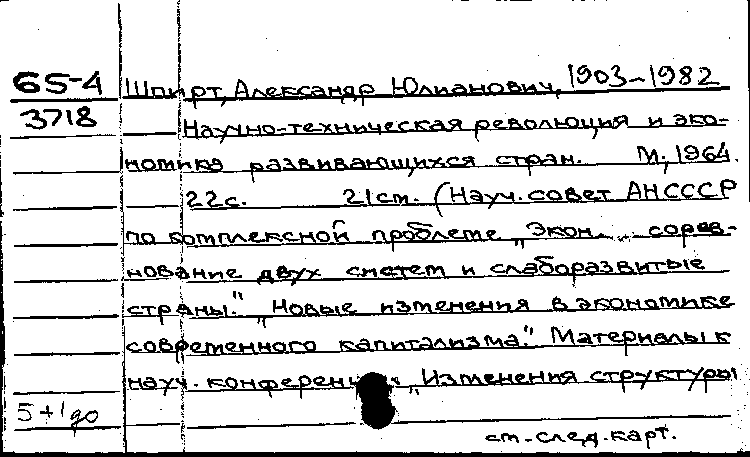 65-4 Шпирт, Александр Юлианович, 1903-1982
3718 Научно-техническая революция и эко-
номика развивающихся стран. М., 1964.
22с. 21см. (Науч. совет АНСССР
по комплексной проблеме „Экон. сорев-
нование двух систем и слаборазвитые
страны." „Новые изменения в экономике
современного капитализма." Материалы к
науч. конференции „Изменения структуры
5+1до
см. след. карт.